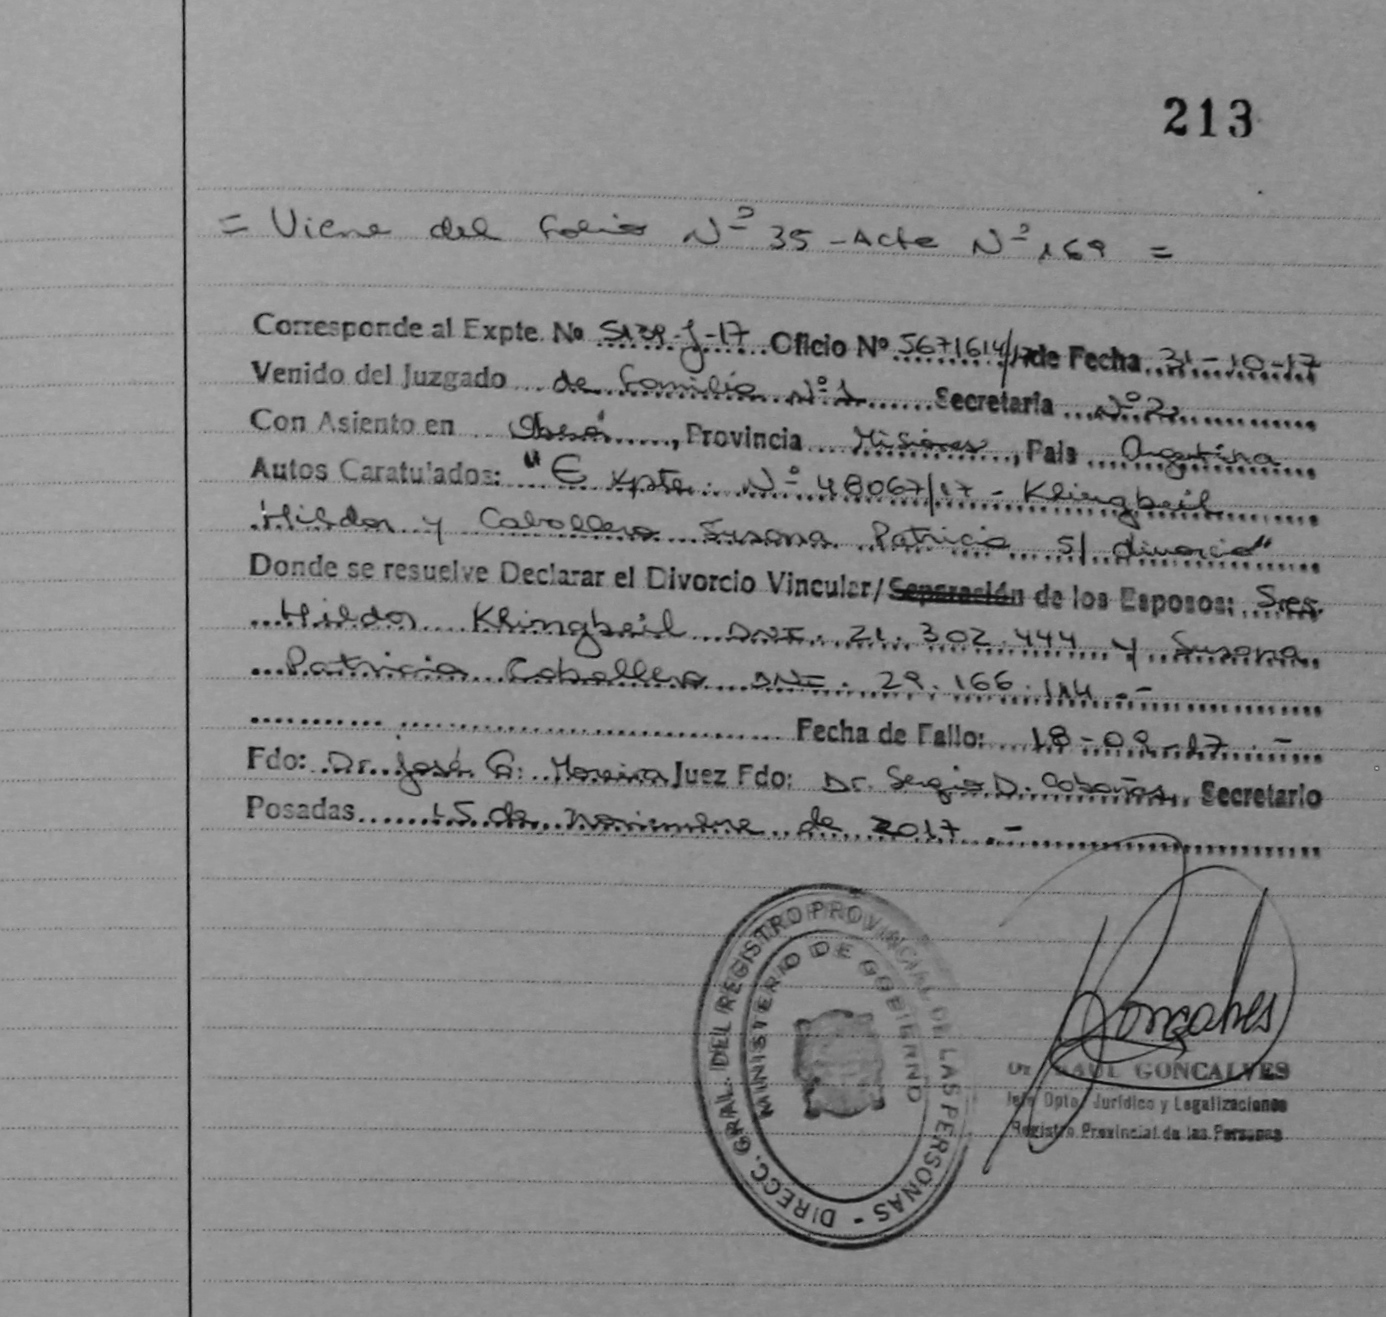 213
= Viene del Folio Nº 35 - Acta Nº 169 =
Corresponde al Expte. Nº J-17 Oficio Nº 5671614/17 de Fecha 31-10-17
Venido del Juzgado de Familia Nº 1 Secretaria Nº 2
Con Asiento en Oberá, Provincia Misiones, País Argentina
Autos Caratulados: "Expte. Nº 48067/17 - Klingbeil
Hildor y Caballero Susana Patricia S/ divorcio"
Donde se resuelve Declarar el Divorcio Vincular/Separación de los Esposos: Sres.
Hildor Klingbeil DNI. 21.302.444 y Susana
Patricia Caballero DNI. 29.166.114.-
Fecha de Fallo: 18-09-17.-
Fdo: Dr. José G. Moreira Juez Fdo: Dr. Sergio D. Cabañas, Secretario
Posadas 15 de noviembre de 2017.-
DIRECC. GRAL. DEL REGISTRO PROVINCIAL DE LAS PERSONAS -
MINISTERIO DE GOBIERNO
Goncalves
Dr. RAUL GONCALVES
Jefe Dpto. Jurídico y Legalizaciones
Registro Provincial de las Personas